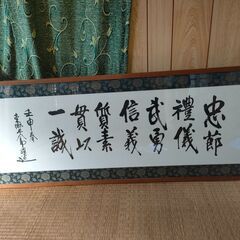 忠節
禮儀
武勇
信義
質素
貫以
一誠
壬申春